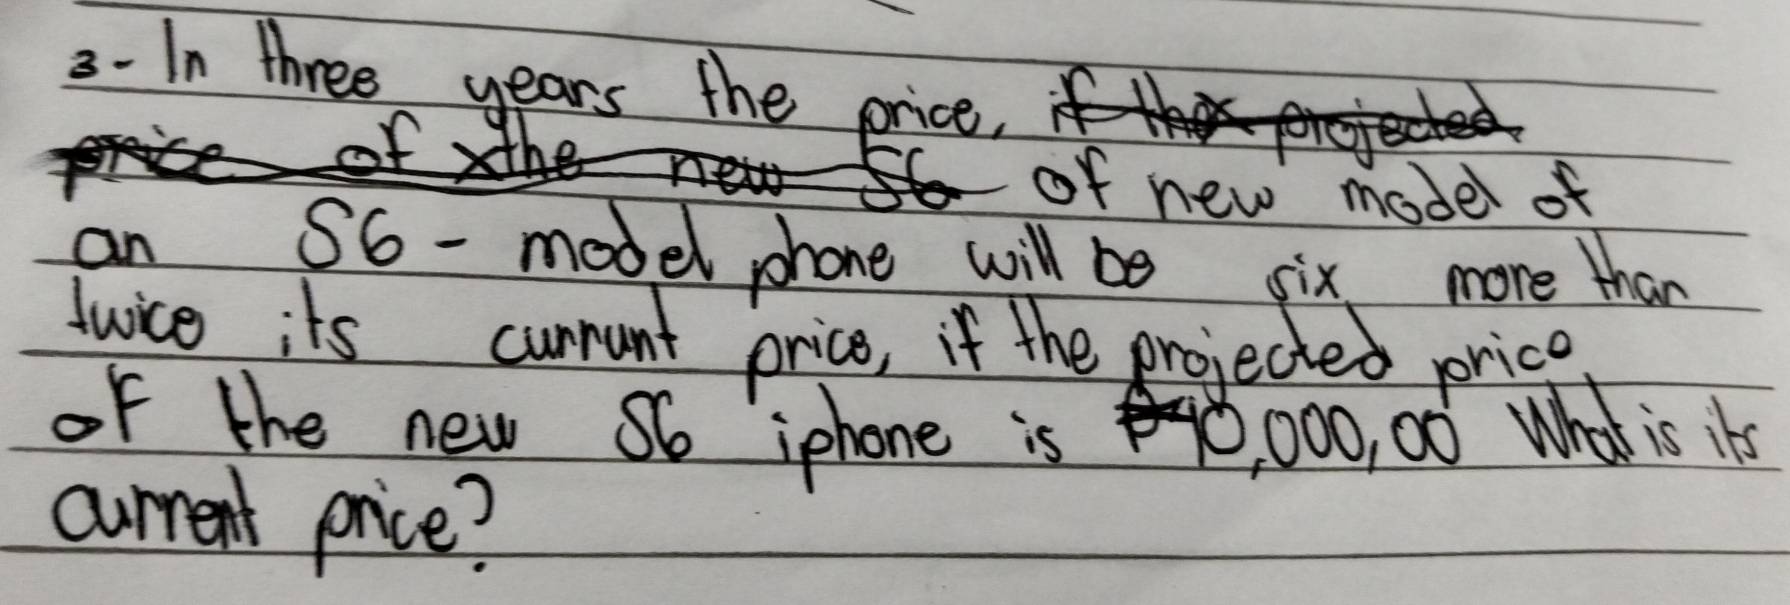 3- In three years the price, if the projected
price of the new S6 of new model of
an S6 - model phone will be six more than
twice its currunt price, if the projected price
of the new S6 iphone is ₱40,000,00 What is its
current price?